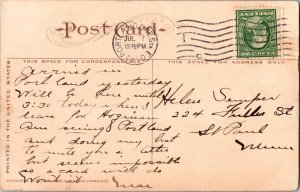 Post Card
PORTLAND
JUL
12-PM
THIS SPACE FOR CORRESPONDENCE
THIS SPACE FOR ADDRESS ONLY
PRINTED IN THE UNITED STATES
Arrived in
Portland yesterday
Will be here until
3:30 today when I
leave for
Am seeing Portland
and doing my best
to write you a letter
but seems impossible
so a card will do
Helen
224
St Paul
Minn